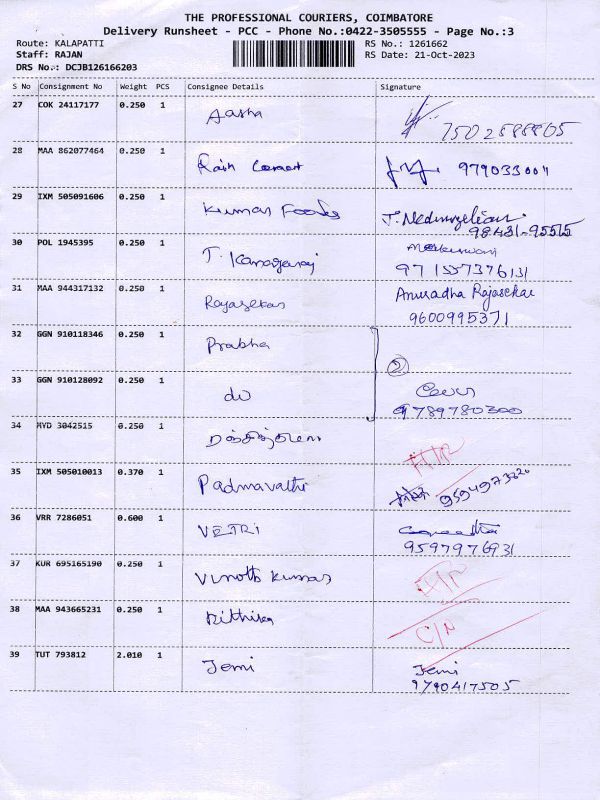 THE PROFESSIONAL COURIERS, COIMBATORE
Delivery Runsheet - PCC - Phone No.:0422-3505555 - Page No.:3
Route: KALAPATTI RS No.: 1261662
Staff: RAJAN RS Date: 21-Oct-2023
DRS No.: DCJB126166203
S No Consignment No Weight PCS Consignee Details Signature
27 COK 24117177 0.250 1 Aasha
28 MAA 862077464 0.250 1 Rain 9790330011
29 IXM 505091606 0.250 1 Kumar Foods
98431-95515
30 POL 1945395 0.250 1 T. Kanagaraj
971557376131
31 MAA 944317132 0.250 1 Rajasekar Anuradha Rajasekar
9600995371
32 GGN 910118346 0.250 1 Prabha
2
33 GGN 910128092 0.250 1 do
9789780300
34 MYD 3042515 0.250 1
35 IXM 505010013 0.370 1 Padmavathi
36 VRR 7286051 0.600 1 VETRI
9597976931
37 KUR 695165190 0.250 1 Vinoth Kumar
38 MAA 943665231 0.250 1 Rithika C/N
39 TUT 793812 2.010 1 Jemi Jemi
9790417505